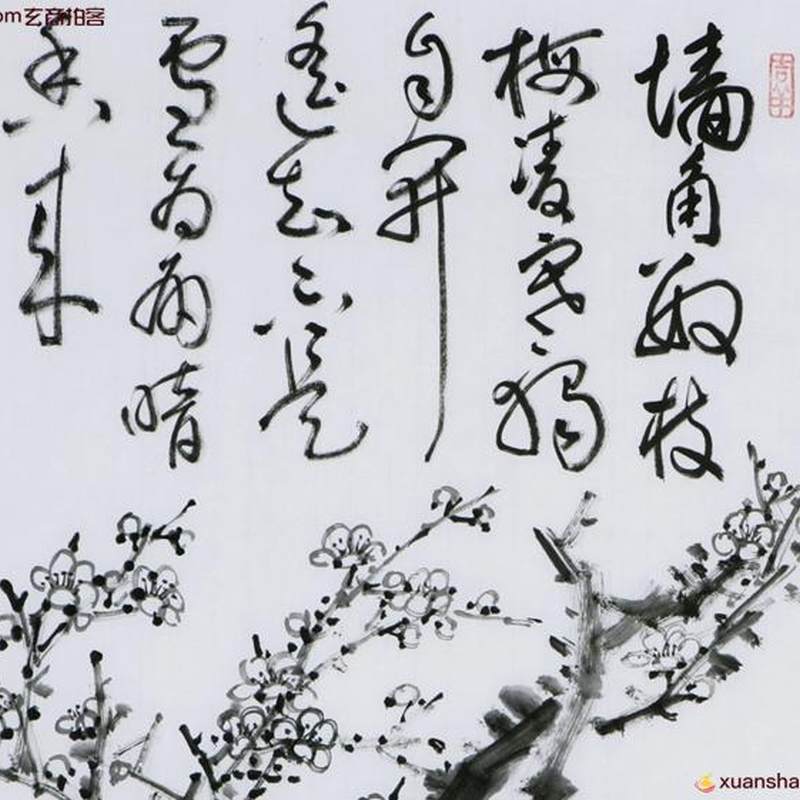 墙角数枝
梅凌寒独
自开
遥知不是
雪为有暗
香来
om玄商拍客
xuansha